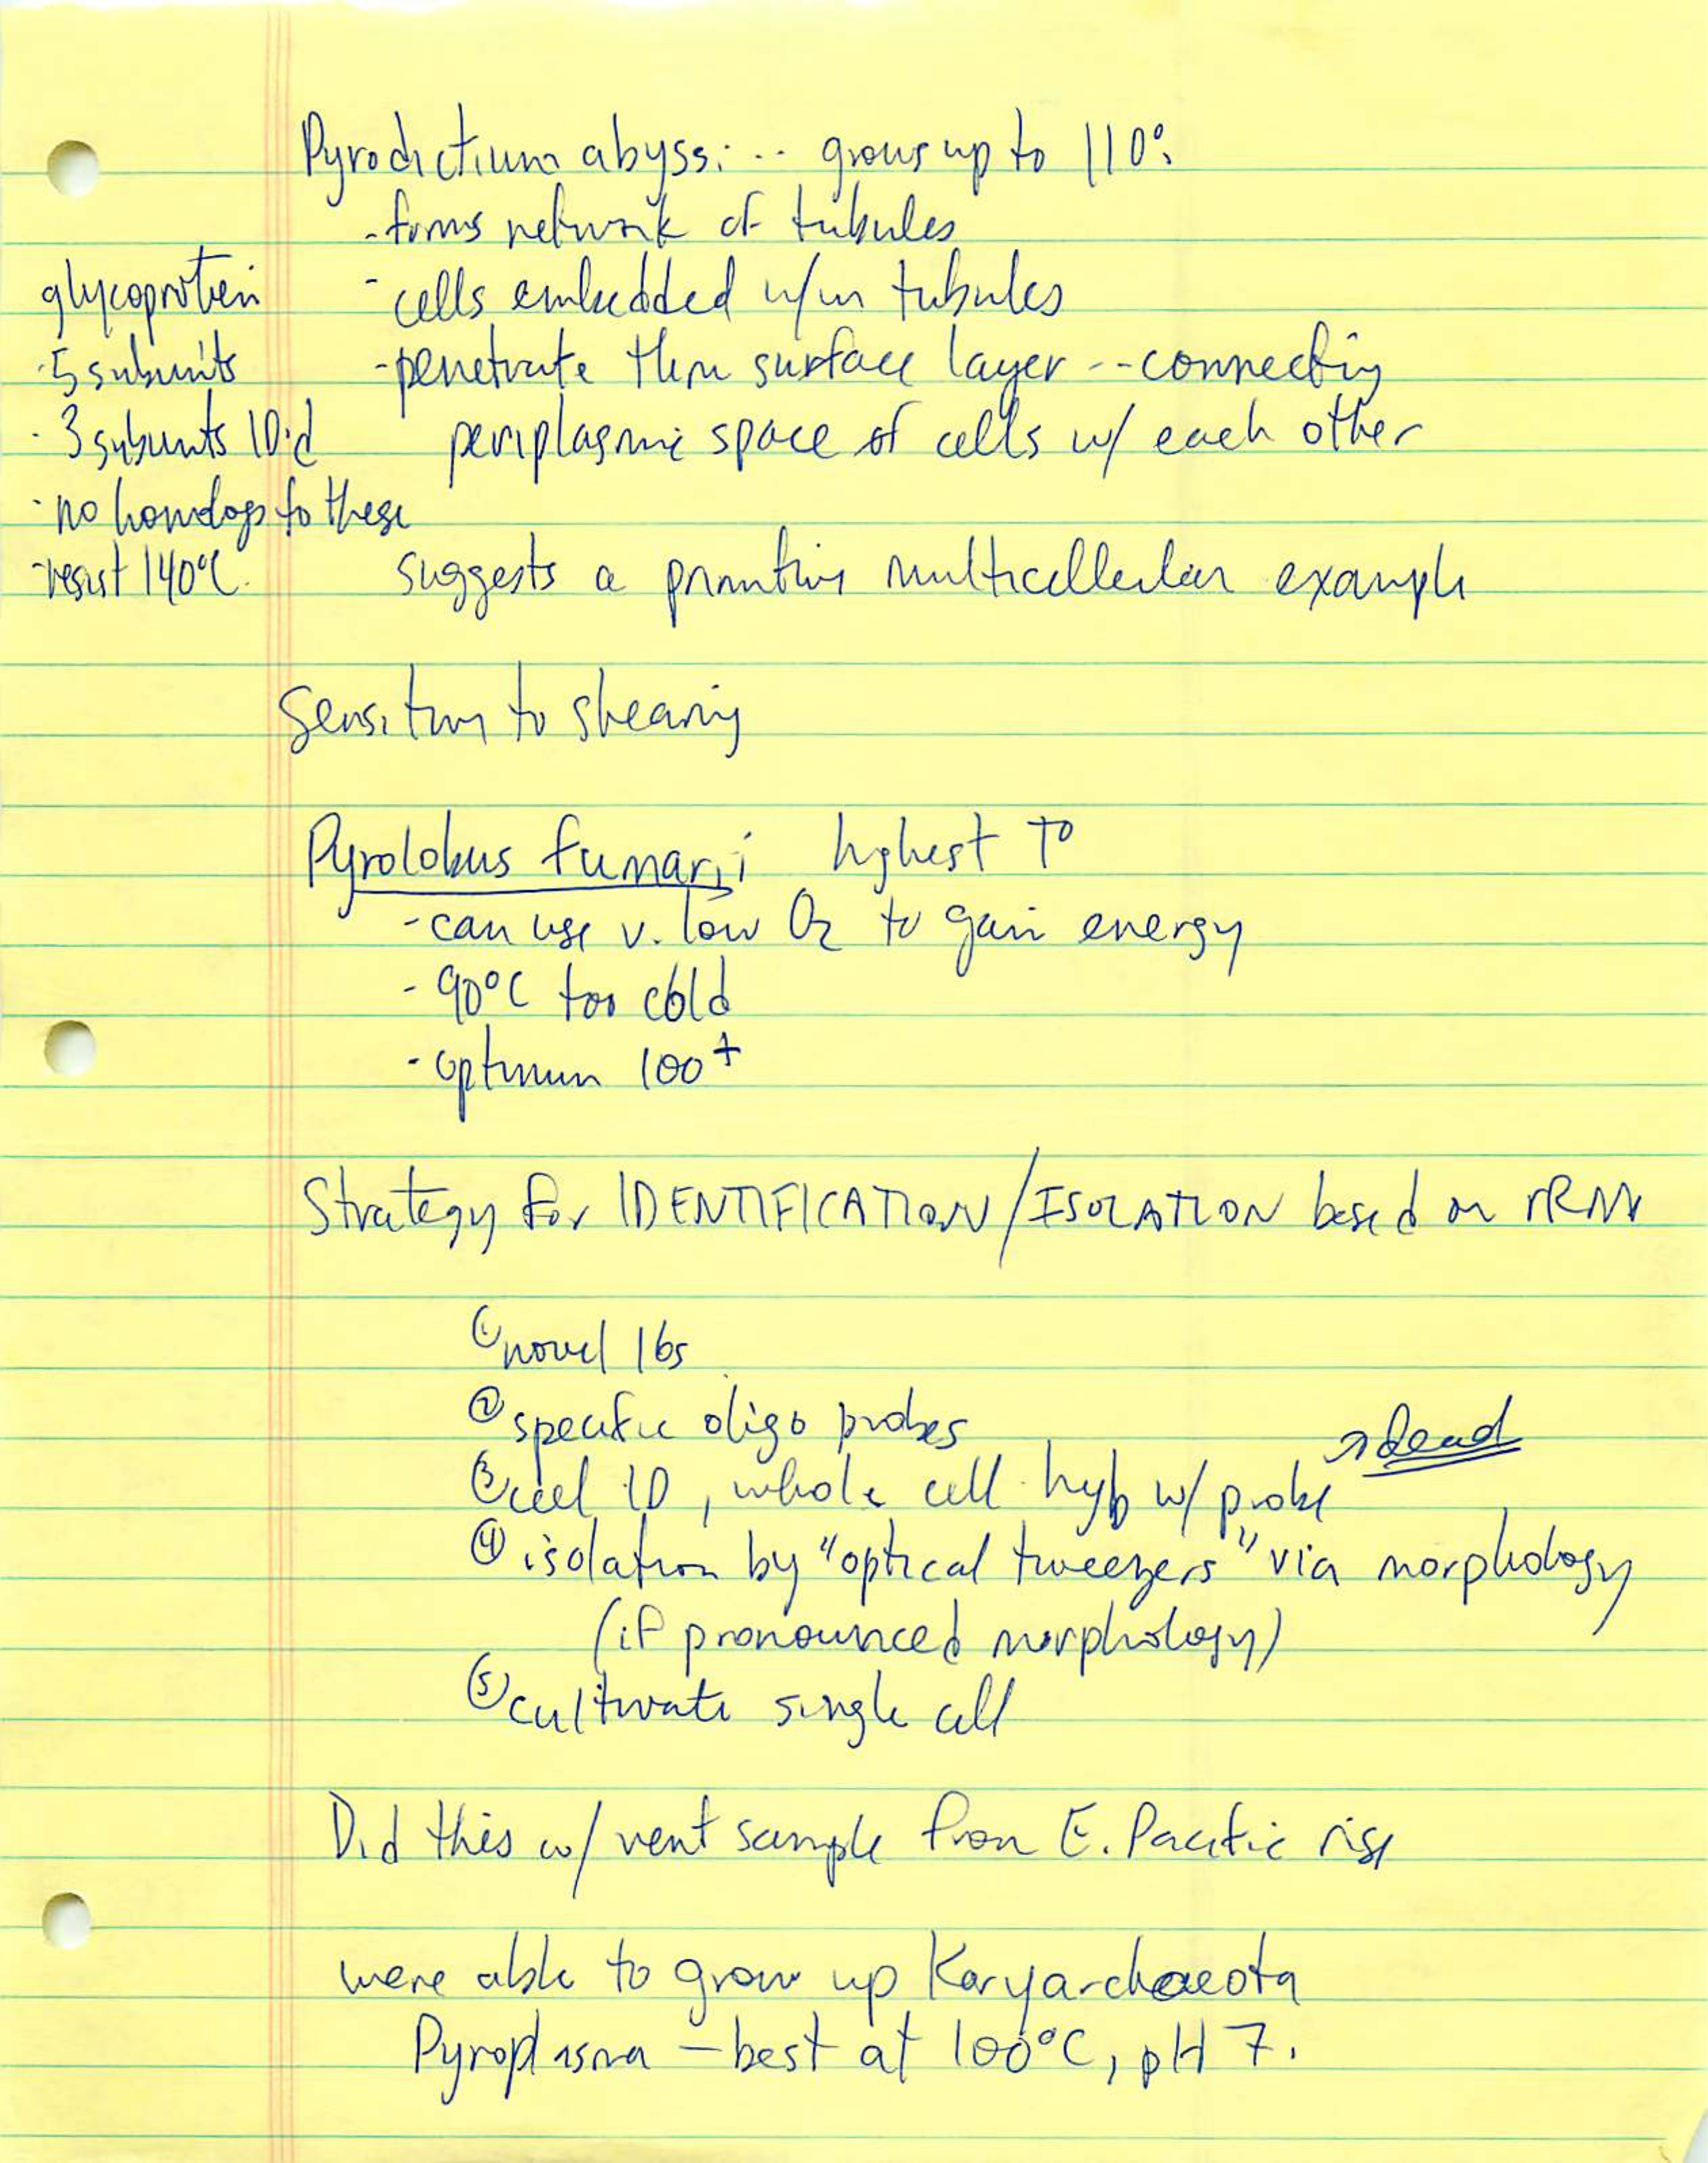 Pyrodictium abyssi -- grows up to 110°
- forms network of tubules
- cells embedded w/in tubules
- penetrate thru surface layer -- connecting
periplasmic space of cells w/ each other
glycoprotein
· 5 subunits
· 3 subunits ID'd
· no homologs to these
- resist 140°C
suggests a primitive multicellular example
Sensitive to shearing
Pyrolobus fumarii highest T°
- can use v. low O2 to gain energy
- 90°C too cold
- optimum 100+
Strategy for IDENTIFICATION/ISOLATION based on rRNA
① novel 16s
② specific oligo probes
③ cell ID, whole cell hyb w/ probe → dead
④ isolation by "optical tweezers" via morphology
(if pronounced morphology)
⑤ cultivate single cell
Did this w/ vent sample from E. Pacific rise
were able to grow up Koryarchaeota
Pyroplasma - best at 100°C, pH 7.